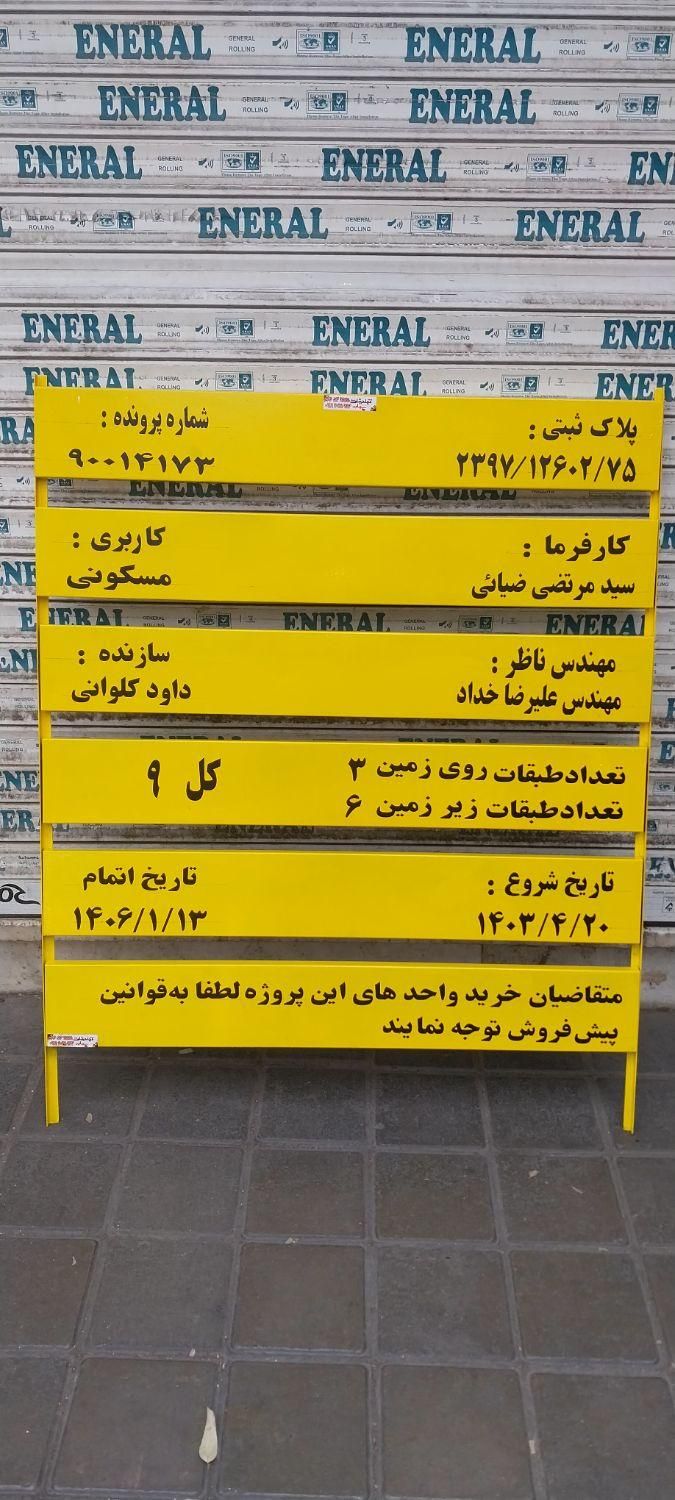 ENERAL GENERAL ROLLING ISO9001 ENERAL GENERAL ROLLING ISO9001
ENERAL GENERAL ROLLING ISO9001 ENERAL
ENERAL GENERAL ROLLING ISO9001 ENERAL GENERAL ROLLING ISO9001 EN
ENERAL GENERAL ROLLING ISO9001 ENERAL
ENERAL GENERAL ROLLING ENERAL GENERAL ROLLING ENER
ENERAL ENERAL
پلاک ثبتی : شماره پرونده :
۲۳۹۷/۱۲۶۰۲/۷۵ ۹۰۰۱۴۱۷۳
کارفرما : کاربری :
سید مرتضی ضیائی مسکونی
ENERAL ENERAL ENERAL
مهندس ناظر : سازنده :
مهندس علیرضا خداد داود کلوانی
تعدادطبقات روی زمین ۳ کل ۹
تعدادطبقات زیر زمین ۶
تاریخ شروع : تاریخ اتمام
۱۴۰۳/۴/۲۰ ۱۴۰۶/۱/۱۳
متقاضیان خرید واحد های این پروژه لطفا به‌قوانین
پیش‌فروش توجه نمایند